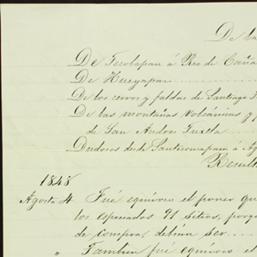 De la
De Tecolapan á Rio de Caña
De Hueyapan
De los cerros y faldas de Santiago
De las montañas volcánicas y
de San Andres Tuxtla
Dudoros desde Santecomapan á Ag
Result
1848
Agosto 4 Fué equívoco el poner que
los espresados 71 sitios, porq
de compra, debian ser
" Tambien fué equívoco el